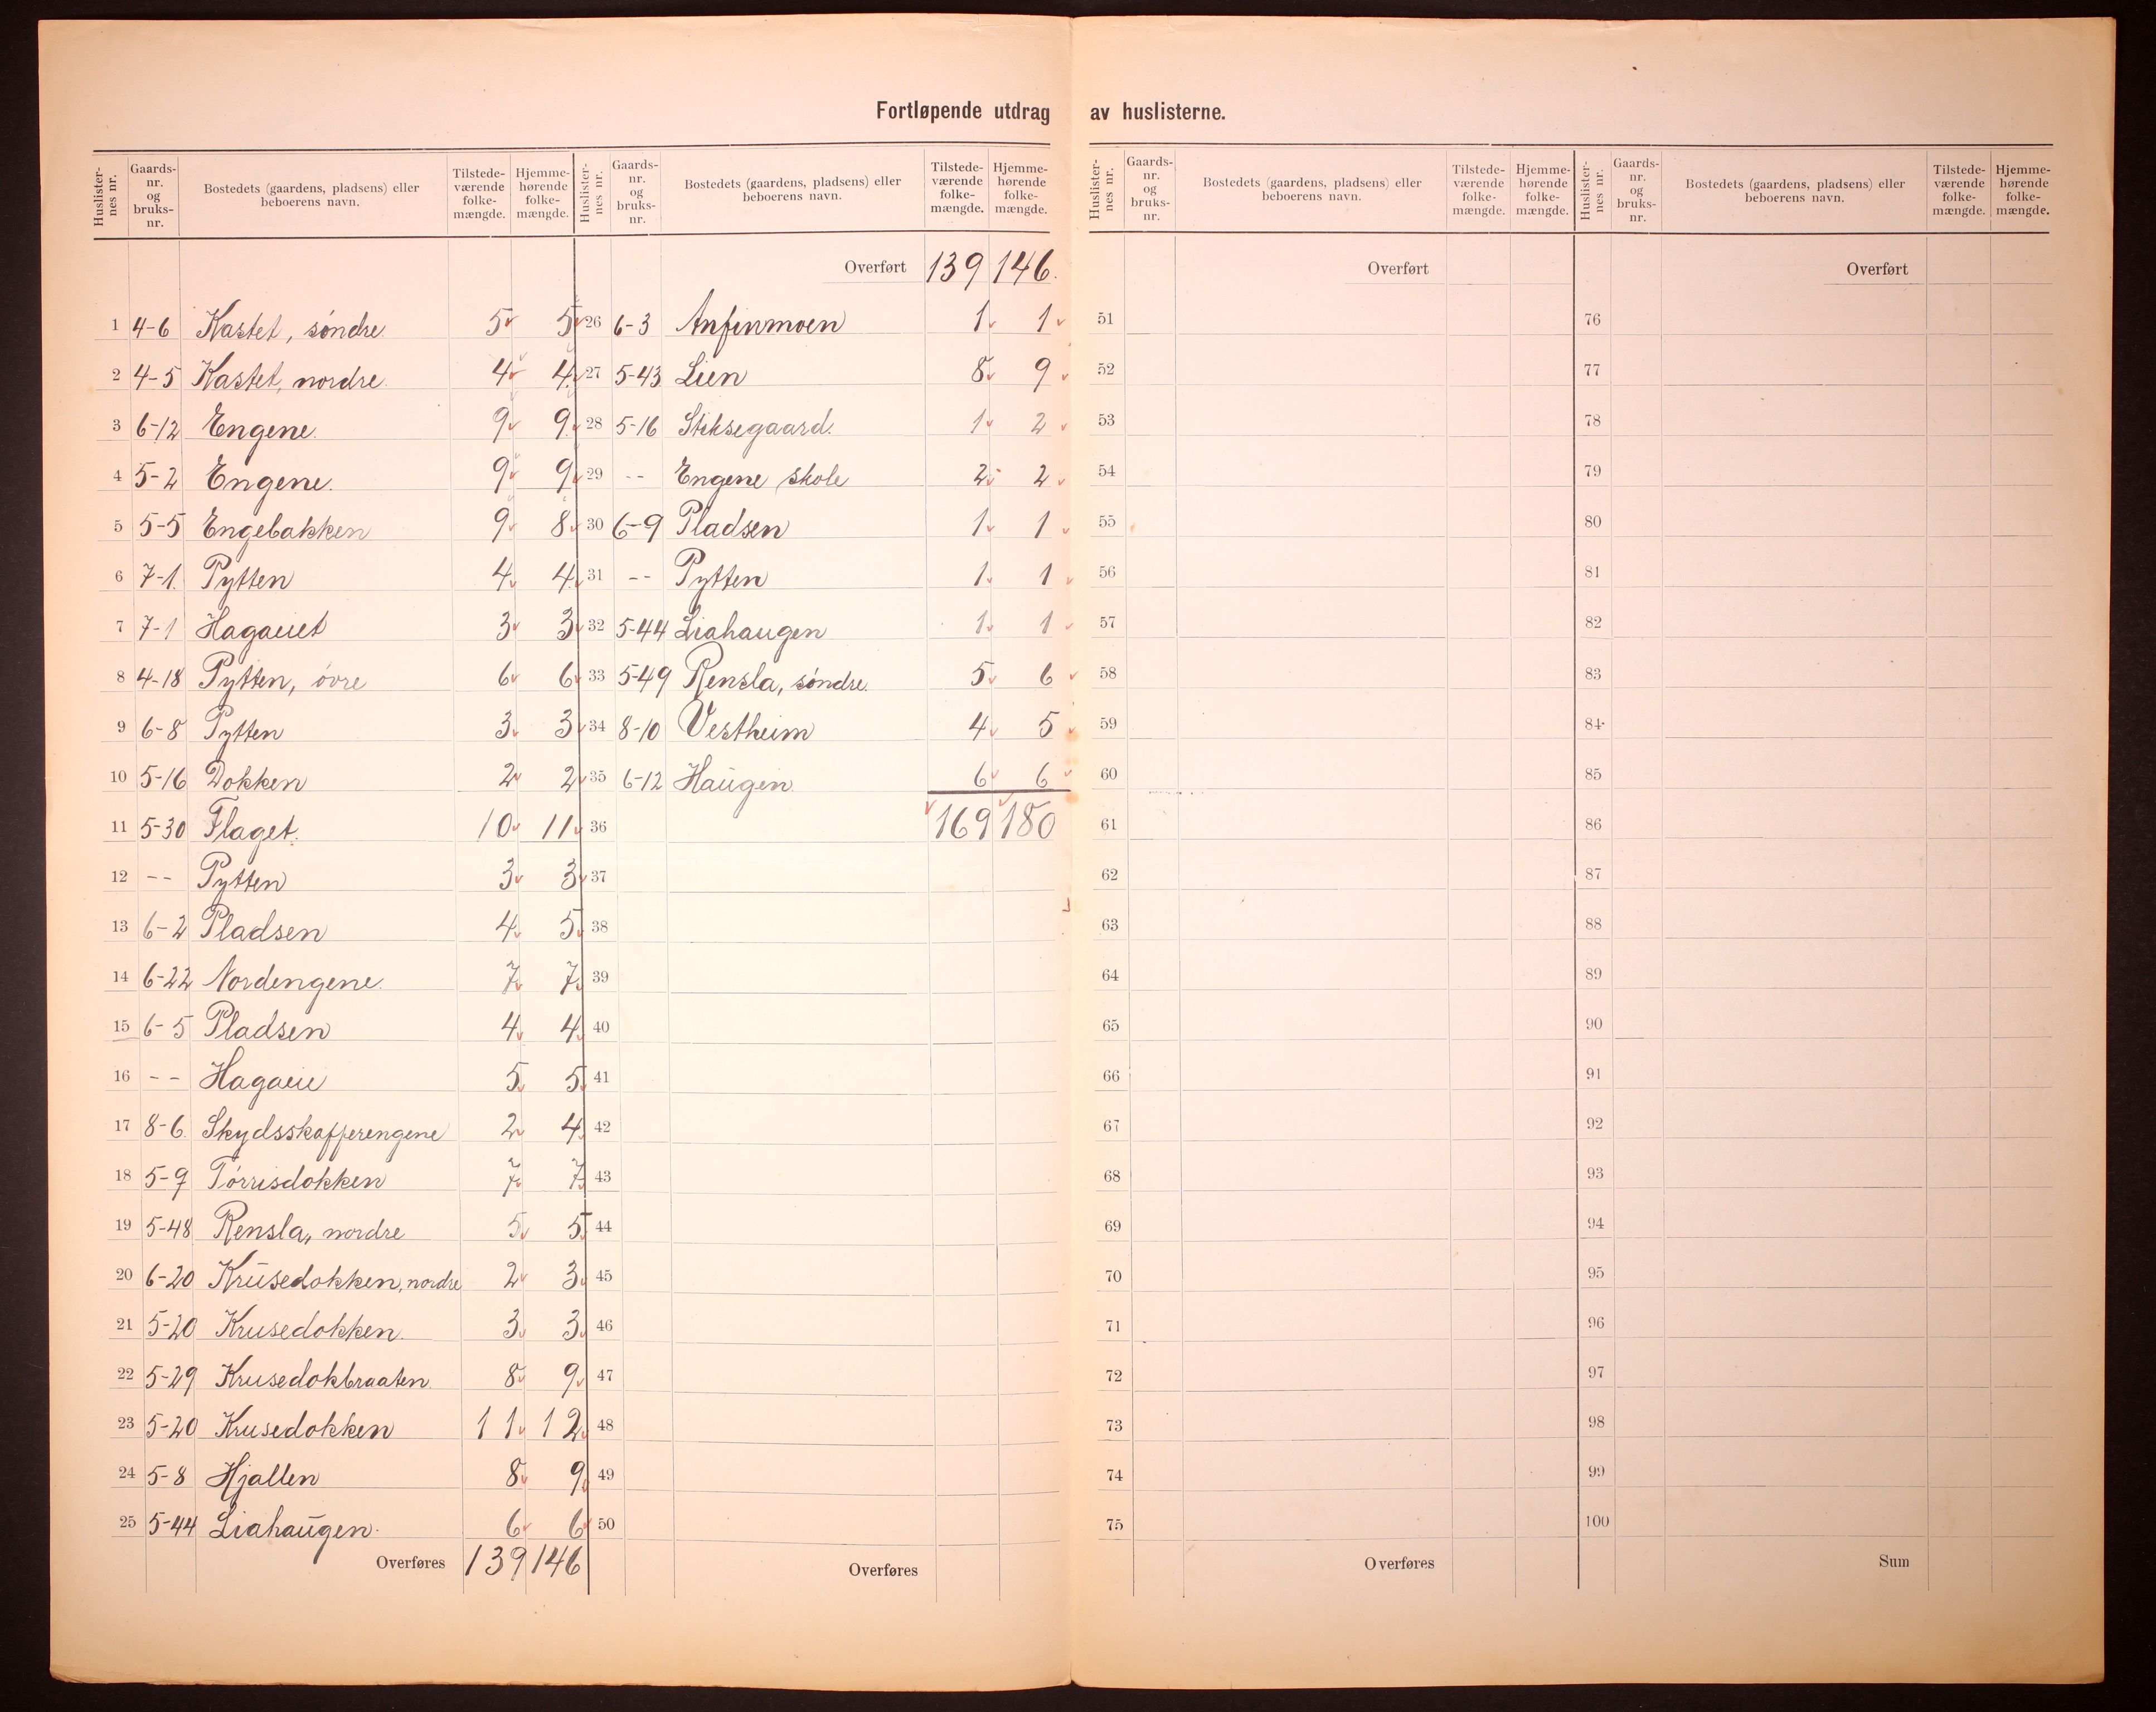 Fortløpende utdrag av huslisterne.
Huslister-nes nr. Gaards-nr. og bruks-nr. Bostedets (gaardens, pladsens) eller beboerens navn. Tilstede-værende folke-mængde. Hjemme-hørende folke-mængde.
1 4-6 Kastet, søndre 5 5
2 4-5 Kastet, nordre 4 4
3 6-12 Engene 9 9
4 5-2 Engene. 9 9
5 5-5 Engebakken 9 8
6 7-1. Pytten 4 4
7 7-1 Hagaeiet 3 3
8 4-18 Pytten, øvre 6 6
9 6-8 Pytten 3 3
10 5-16 Dokken 2 2
11 5-30 Flaget. 10 11
12 -- Pytten 3 3
13 6-2 Pladsen 4 5
14 6-22 Nordengene. 7 7
15 6-5 Pladsen 4 4
16 -- Hagaeie 5 5
17 8-6 Skydsskafferengene 2 4
18 5-9 Tørrisdokken 7 7
19 5-48 Rensla, nordre 5 5
20 6-20 Krusedokken, nordre 2 3
21 5-20 Krusedokken. 3 3
22 5-29 Krusedokbraaten 8 9
23 5-20 Krusedokken 11 12
24 5-8 Hjallen 8 9
25 5-44 Liahaugen. 6 6
Overføres 139 146
Huslister-nes nr. Gaards-nr. og bruks-nr. Bostedets (gaardens, pladsens) eller beboerens navn. Tilstede-værende folke-mængde. Hjemme-hørende folke-mængde.
Overført 139 146.
26 6-3 Anfinmoen 1 1
27 5-43 Lien 8 9
28 5-16 Stiksegaard. 1 2
29 -- Engene skole 2 2
30 6-9 Pladsen 1 1
31 -- Pytten 1 1
32 5-44 Liahaugen 1 1
33 5-49 Rensla, søndre. 5 6
34 8-10 Vestheim 4 5
35 6-12 Haugen 6 6
36 169 180
37
38
39
40
41
42
43
44
45
46
47
48
49
50
Overføres
Huslister-nes nr. Gaards-nr. og bruks-nr. Bostedets (gaardens, pladsens) eller beboerens navn. Tilstede-værende folke-mængde. Hjemme-hørende folke-mængde.
Overført
51
52
53
54
55
56
57
58
59
60
61
62
63
64
65
66
67
68
69
70
71
72
73
74
75
Overføres
Huslister-nes nr. Gaards-nr. og bruks-nr. Bostedets (gaardens, pladsens) eller beboerens navn. Tilstede-værende folke-mængde. Hjemme-hørende folke-mængde.
Overført
76
77
78
79
80
81
82
83
84
85
86
87
88
89
90
91
92
93
94
95
96
97
98
99
100
Sum